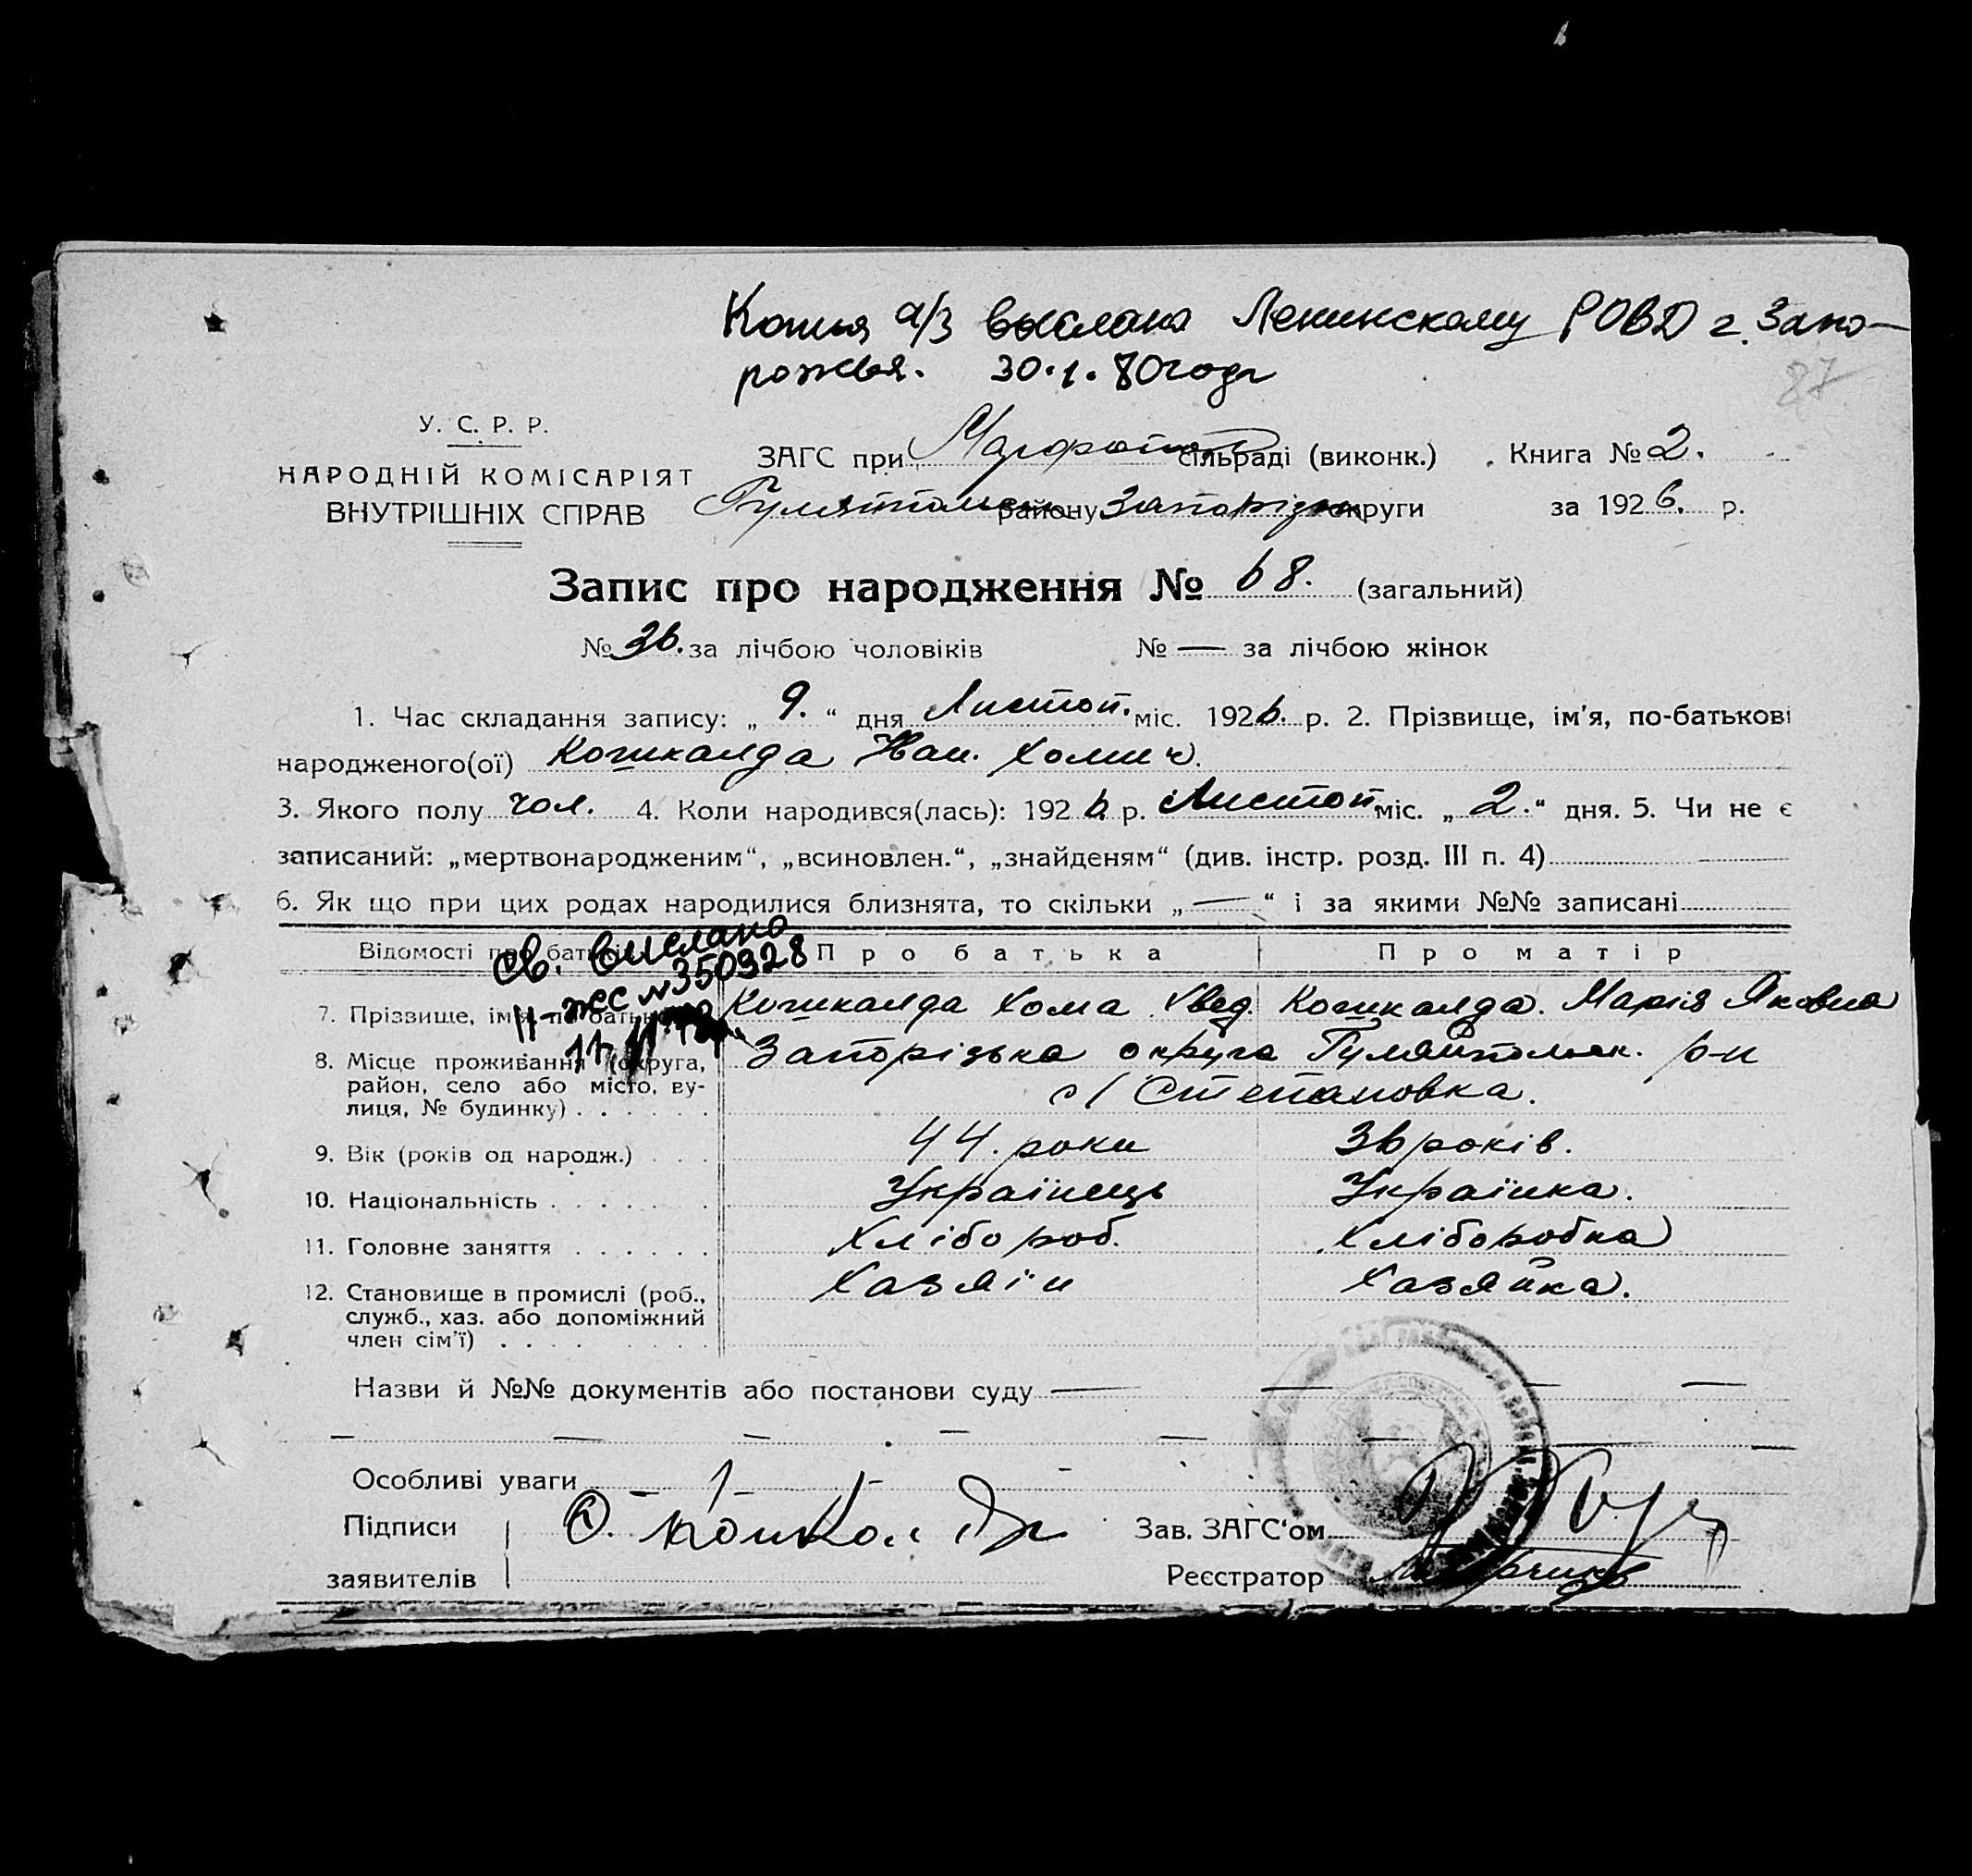 Копия а/з выслана Ленинскому РОВД г. Запо-
рожья. 30.1.80 года
87
У. С. Р. Р.
НАРОДНІЙ КОМІСАРІЯТ
ВНУТРІШНІХ СПРАВ
ЗАГС при сільраді (виконк.) Книга № 2.
району Запорізьк округи за 1926. р.
Запис про народження № 68. (загальний)
№ 36. за лічбою чоловіків № — за лічбою жінок
1. Час складання запису: „ 9. “ дня Листоп. міс. 1926. р. 2. Прізвище, ім'я, по-батькові
народженого(ої) Кошкалда Іван. Хомич.
3. Якого полу чол. 4. Коли народився(лась): 1926 р. Листоп міс. „ 2. “ дня. 5. Чи не є
записаний: „мертвонародженим“, „всиновлен.“, „знайденям“ (див. інстр. розд. III п. 4)
6. Як що при цих родах народилися близнята, то скільки „ — “ і за якими №№ записані
Відомості про батьків Про батька Про матір
св. выслано
II-ЖС № 350928
7. Прізвище, ім'я, по-батькові Кошкалда Хома Хвед. Кошкалда. Марія Яковна
8. Місце проживання (округа, Запорізька округа Гуляйпольск. р-н
район, село або місто, ву- с/ Степановка.
лиця, № будинку)
9. Вік (років од народж.) 44. роки 36 років.
10. Національність Українець Українка.
11. Головне заняття Хлібороб. Хліборобка
12. Становище в промислі (роб., Хазяїн Хазяйка.
служб., хаз. або допоміжний
член сім'ї)
Назви й №№ документів або постанови суду —
Особливі уваги
Підписи Зав. ЗАГС'ом
заявителів Реєстратор